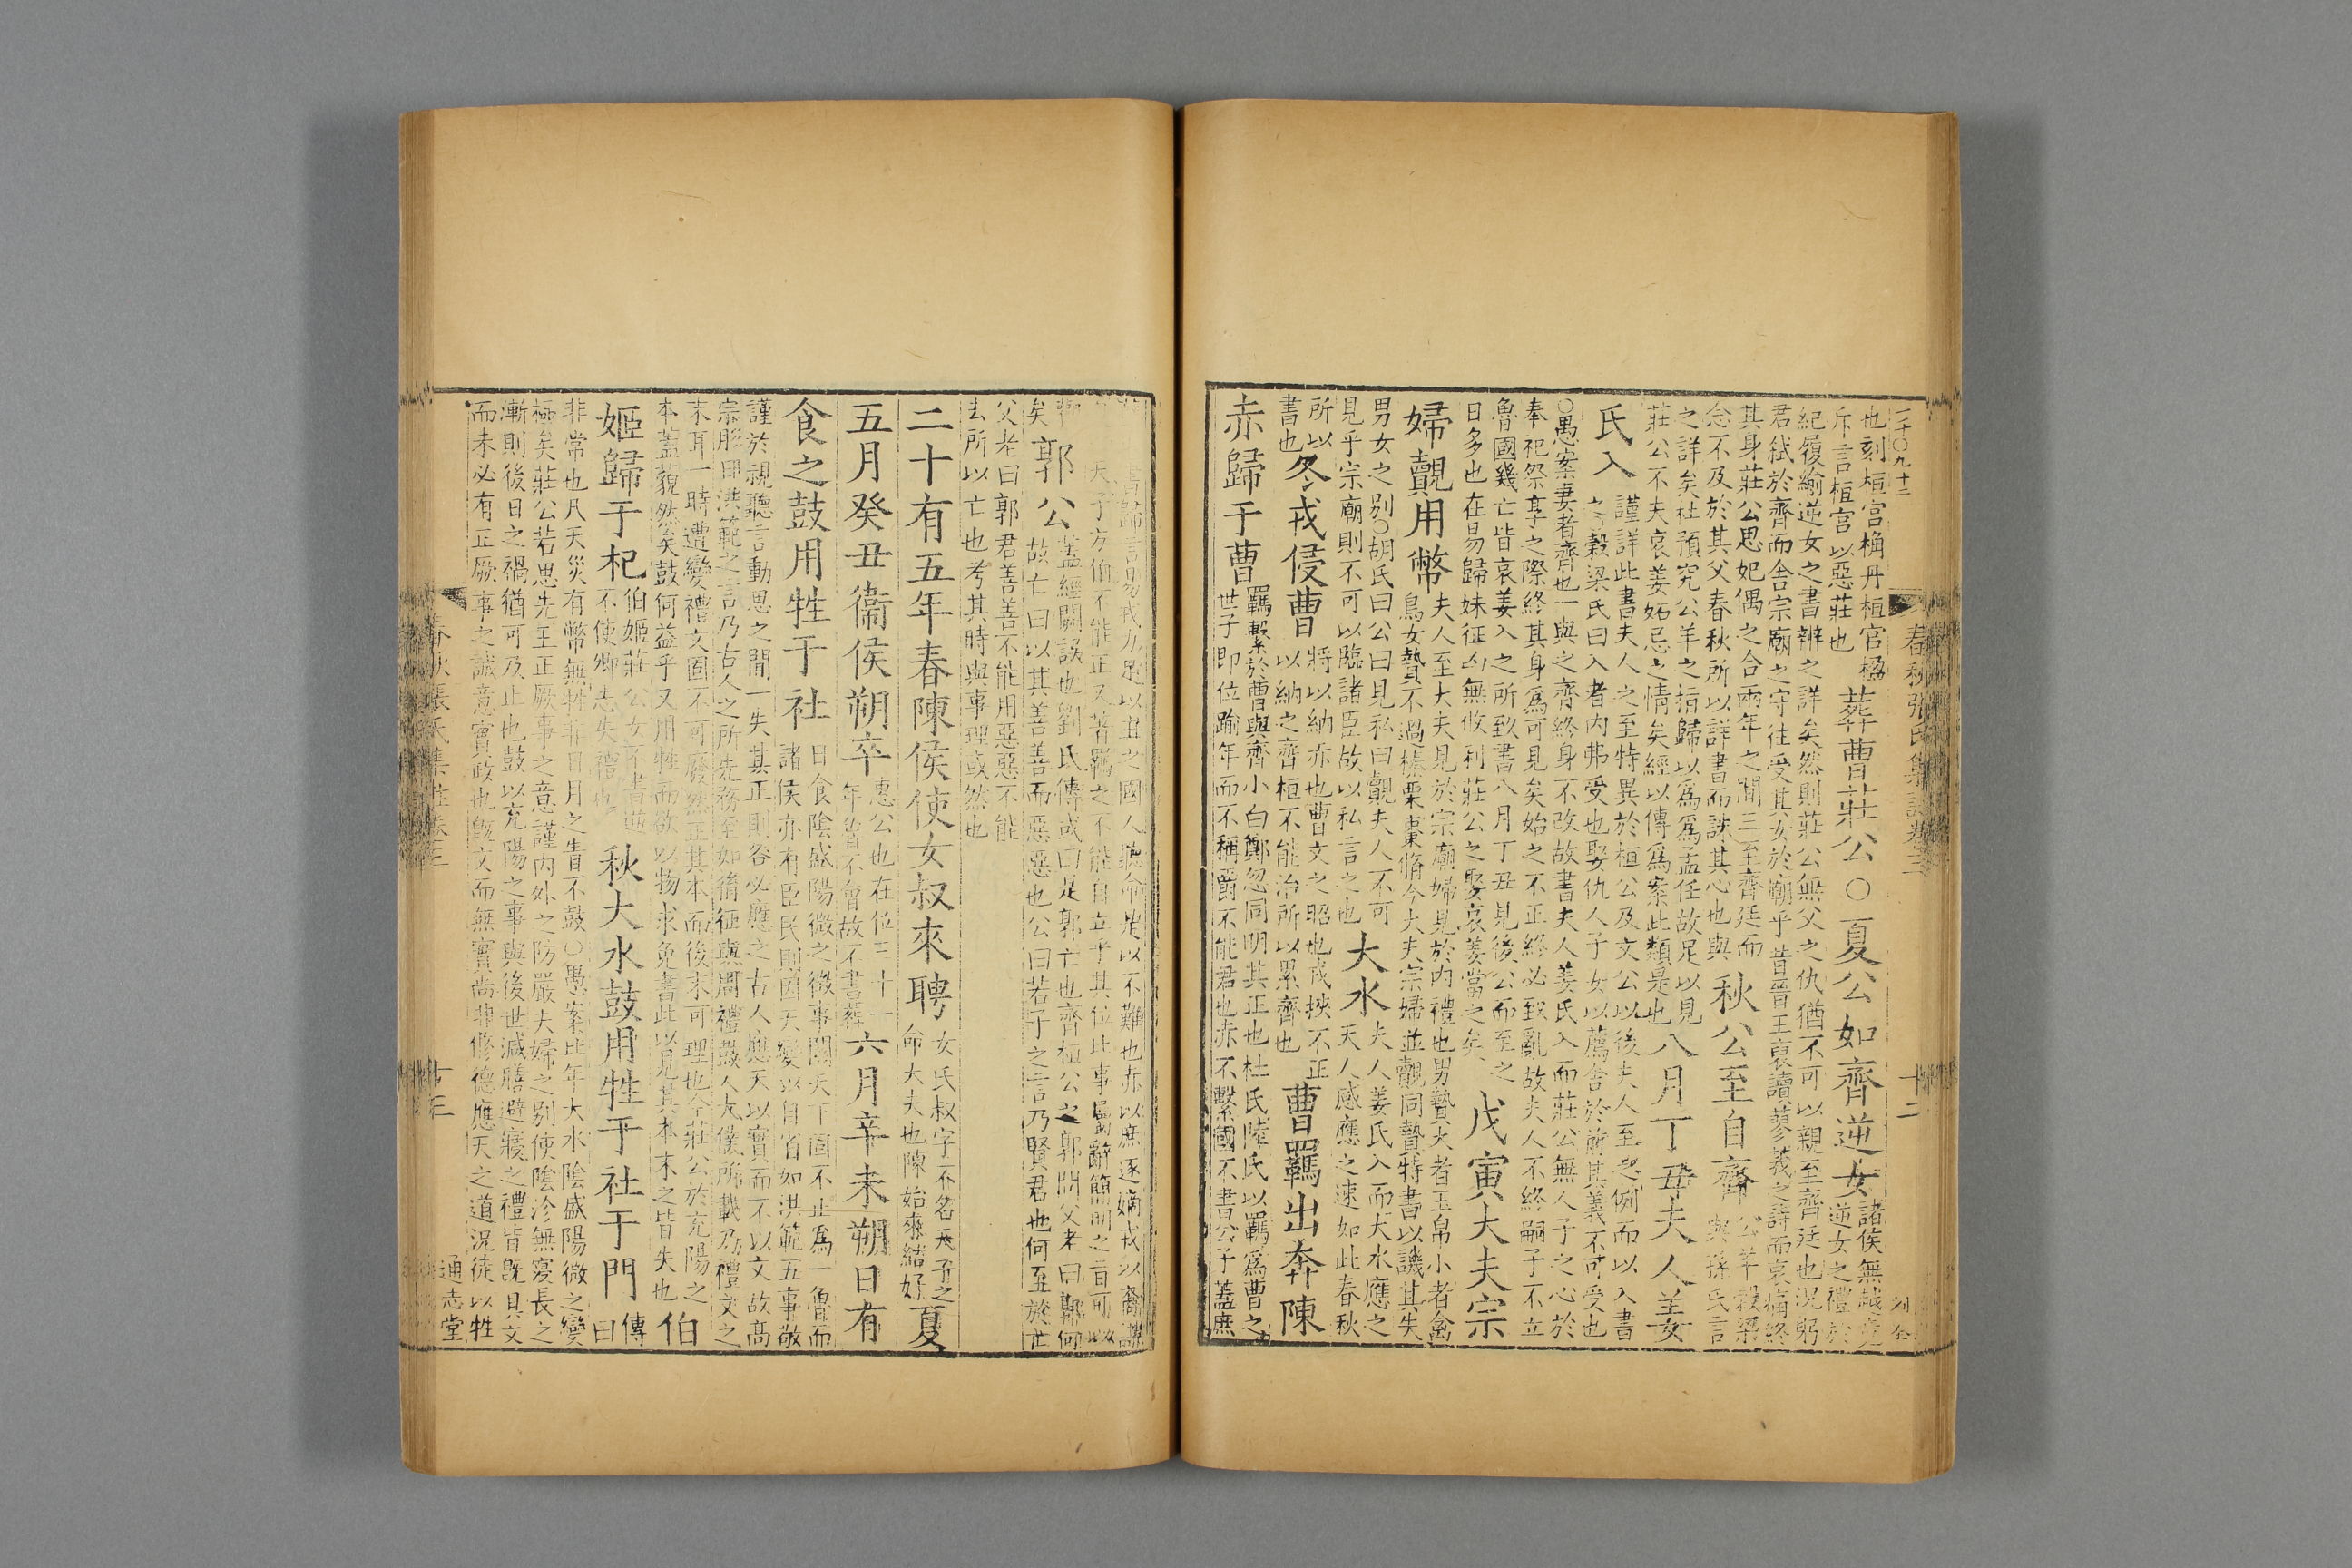 一千〇九十二
春秋張氏集註卷三
十二
也刻桓宮桷丹桓宮楹
斥言桓宮以惡莊也
葬曹莊公〇夏公如齊逆女
諸侯無越竟
逆女之禮於
紀履緰逆女之書辨之詳矣然則莊公無父之仇猶不可以親至齊廷也況躬
君弒於齊而舍宗廟之守往受其女於廟乎昔晉王裒讀蓼莪之詩而哀痛終
其身莊公思妃偶之合兩年之間三至齊廷而
念不及於其父春秋所以詳書而誅其心也與
秋公至自齊
公羊穀梁
與孫氏言
之詳矣杜預究公羊之指歸以爲爲孟任故足以見
莊公不夫哀姜妬忌之情矣經以傳爲案此類是也
八月丁丑夫人姜
氏入
謹詳此書夫人之至特異於桓公及文公以後夫人至之例而以入書
之穀梁氏曰入者內弗受也娶仇人子女以薦舍於前其義不可受也
〇愚案妻者齊也一與之齊終身不改故書夫人姜氏入而莊公無人子之心於
奉祀祭享之際終其身爲可見矣始之不正終必致亂故夫人不終嗣子不立
魯國幾亡皆哀姜入之所致書八月丁丑見後公而至之
日多也在易歸妹征凶無攸利莊公之娶哀姜當之矣
戊寅大夫宗
婦覿用幣
夫人至大夫見於宗廟婦見於內禮也男贄大者玉帛小者禽
鳥女贄不過榛栗棗脩今大夫宗婦並覿同贄特書以譏其失
男女之別〇胡氏曰公曰見私曰覿夫人不可
見乎宗廟則不可以臨諸臣故以私言之也
大水
夫人姜氏入而大水應之
天人感應之速如此春秋
所以
書也
冬戎侵曹
將以納赤也曹文之昭也戎挾不正
以納之齊桓不能治所以累齊也
曹羈出奔陳
赤歸于曹
羈繫於曹與齊小白鄭忽同明其正也杜氏陸氏以羈爲曹之
世子即位踰年而不稱爵不能君也赤不繫國不書公子蓋庶
書歸言易戎力足以
之國人聽命足以不難也亦以庶逐嫡戎以裔謀
天子方伯不能正又著羈之不能自立乎其位比事屬辭簡明之旨可以
矣
郭公
蓋經闕誤也劉氏傳或曰是郭亡也齊桓公之郭問父老曰郭何
故亡曰以其善善而惡惡也公曰若子之言乃賢君也何至於亡
父老曰郭君善善不能用惡惡不能
去所以亡也考其時與事理或然也
二十有五年春陳侯使女叔來聘
女氏叔字不名天子之
命大夫也陳始來結好
夏
五月癸丑衞侯朔卒
惠公也在位三十一
年魯不會故不書葬
六月辛未朔日有
食之鼓用牲于社
日食陰盛陽微之徵事關天下固不止爲一魯而
諸侯亦有臣民則因天變以自省如洪範五事敬
謹於視聽言動思之間一失其正則咎必應之古人應天以實而不以文故高
宗肜日洪範之言乃古人之所先務至如脩征與周禮鼓人太僕所載乃禮文之
末耳一時遭變禮文固不可廢然正其本而後末可理也今莊公於充陽之
本蓋藐然矣鼓何益乎又用牲而欲以物求免書此以見其本末之皆失也
伯
姬歸于杞
伯姬莊公女不書逆
不使卿志失禮也
秋大水鼓用牲于社于門
傳
曰
非常也凡天災有幣無牲非日月之眚不鼓〇愚案比年大水陰盛陽微之變
極矣莊公若思先王正厥事之意謹內外之防嚴夫婦之別使陰沴無寖長之
漸則後日之禍猶可及止也鼓以充陽之事與後世減膳避寢之禮皆旣具文
而未必有正厥事之誠意實政也旣文而無實尚非脩德應天之道況徒以牲
春秋張氏集註卷三
十三
通志堂